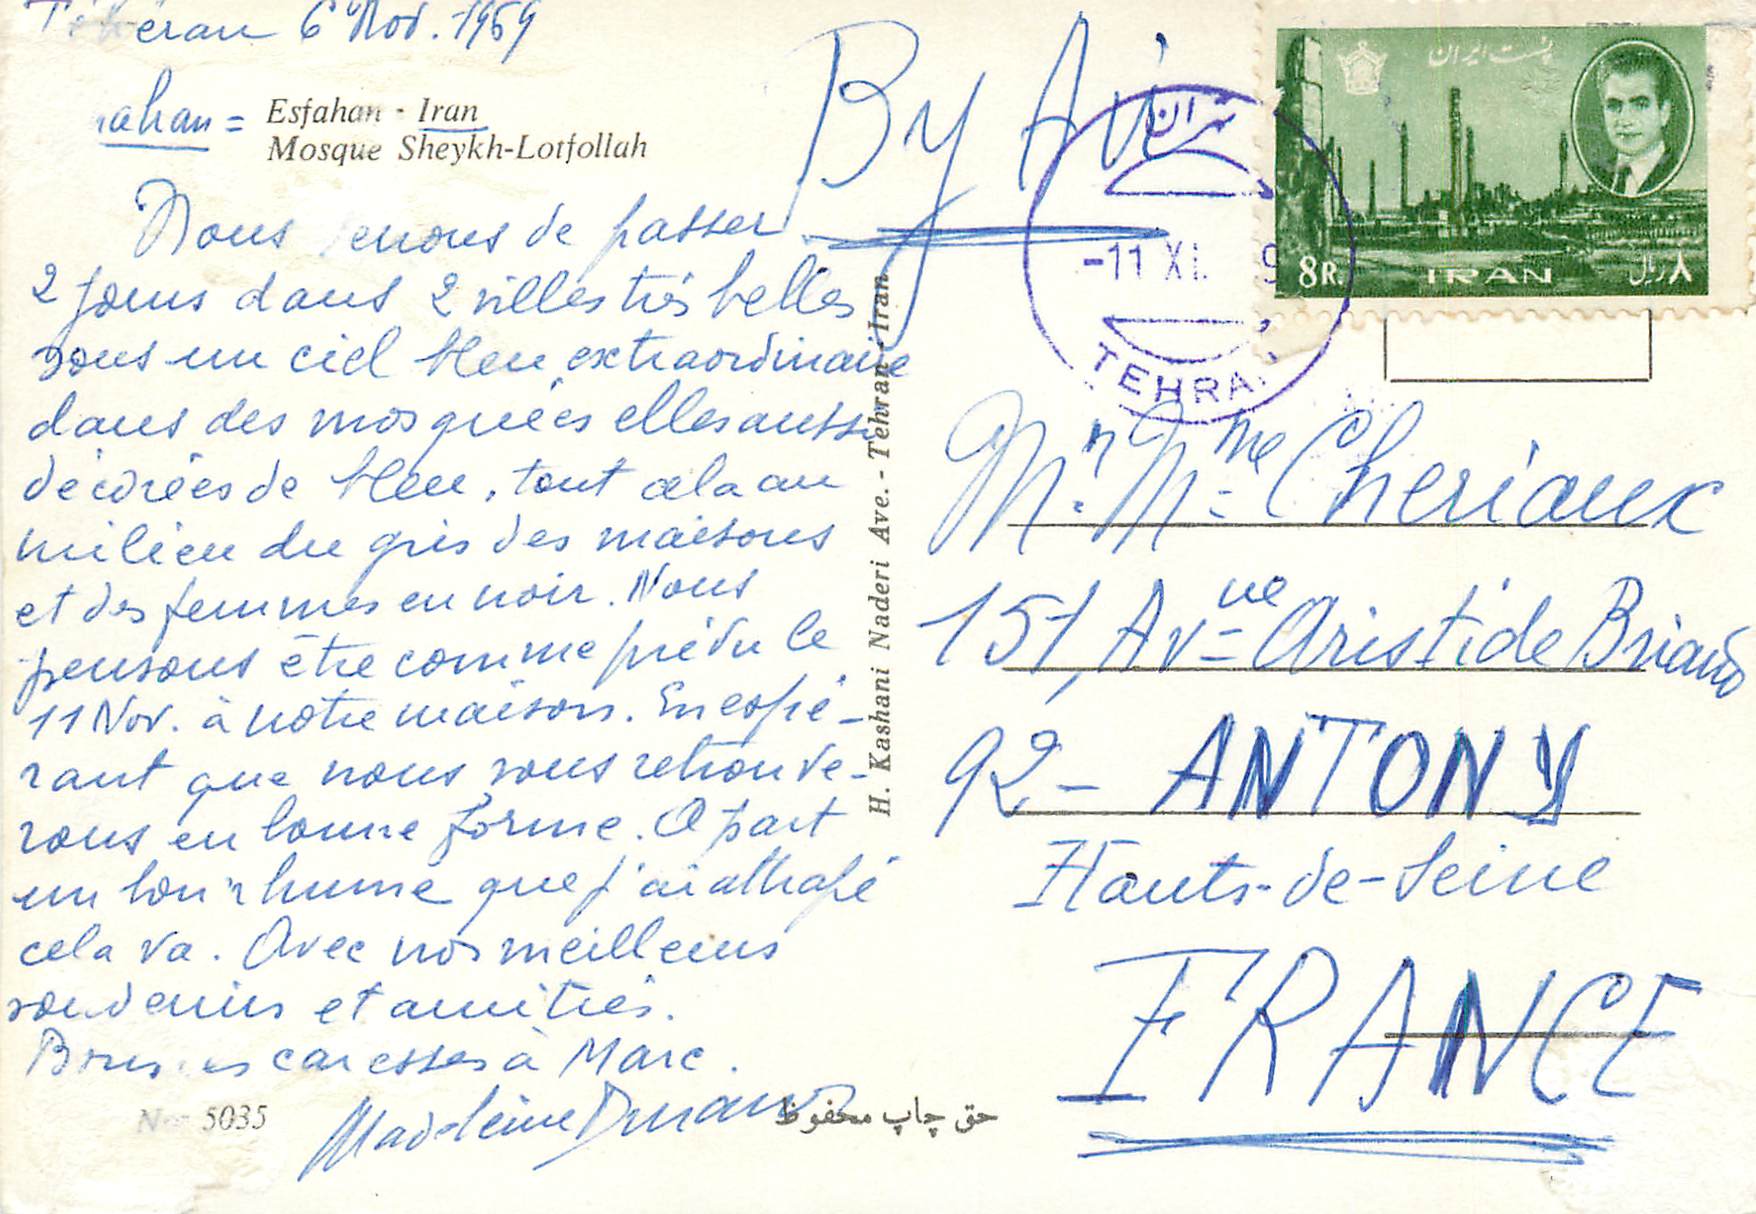 Téhéran 6 Nov. 1969
ahan =
Esfahan - Iran
Mosque Sheykh-Lotfollah
By Air
Nous venons de passer
2 jours dans 2 villes très belles
sous un ciel bleu extraordinaire
dans des mosquées elles aussi
décorées de bleu, tout cela au
milieu du gris des maisons
et des femmes en noir. Nous
pensons être comme prévu le
11 Nov. à notre maison. En espé-
rant que nous vous retrouve-
rons en bonne forme. A part
un bon rhume que j'ai attrapé
cela va. Avec nos meilleurs
souvenirs et amitiés.
caresses à Marc.
Madeleine Durand
No 5035
حق چاپ محفوظ
H. Kashani Naderi Ave. - Tehran - Iran
پست ایران
8 R.
IRAN
۸ ریال
تهران
-11 XI. 9
TEHRA
Mr. Mme Cheriaux
151, Avnue Aristide Briand
92 - ANTONY
Hauts-de-Seine
FRANCE